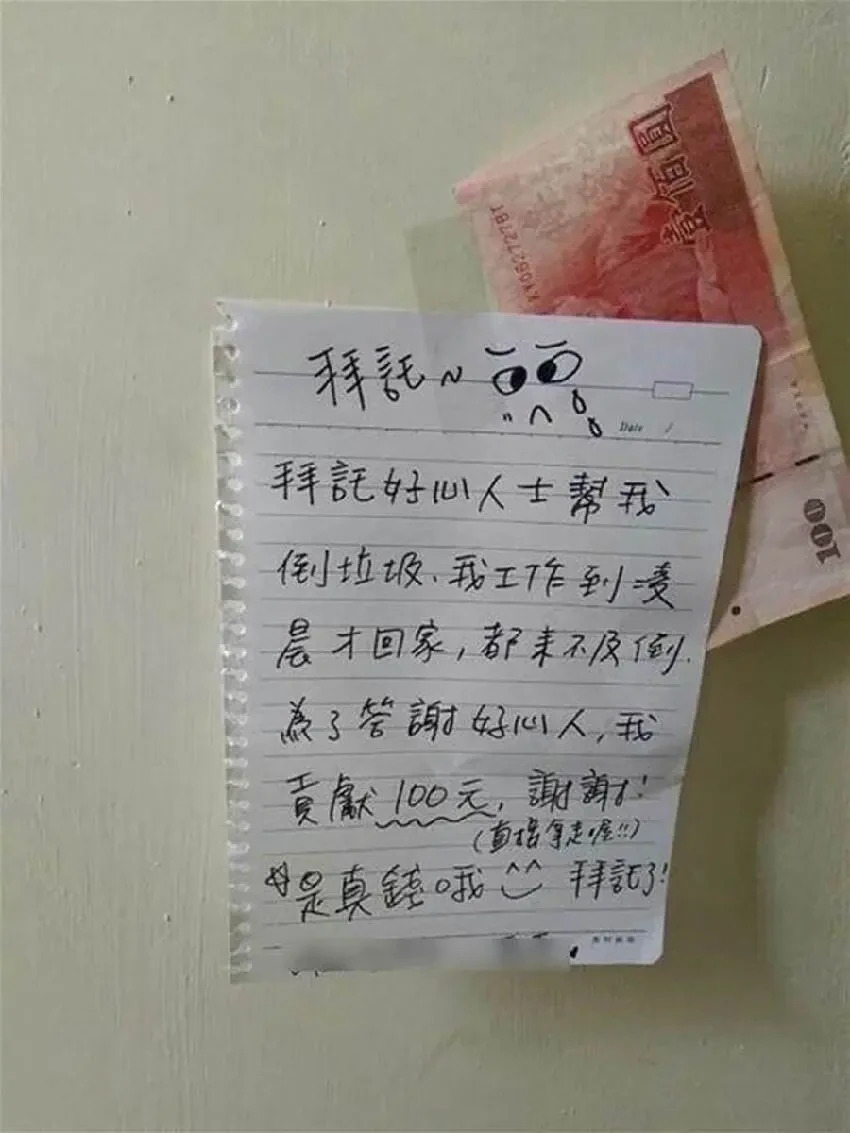 壹佰圓
XY082727BT
100
拜託~
Date /
拜託好心人士幫我
倒垃圾、我工作到凌
晨才回家,都來不及倒.
為了答謝好心人,我
貢獻100元,謝謝!
(直接拿走喔!!)
☆是真錢哦^^ 拜託了!